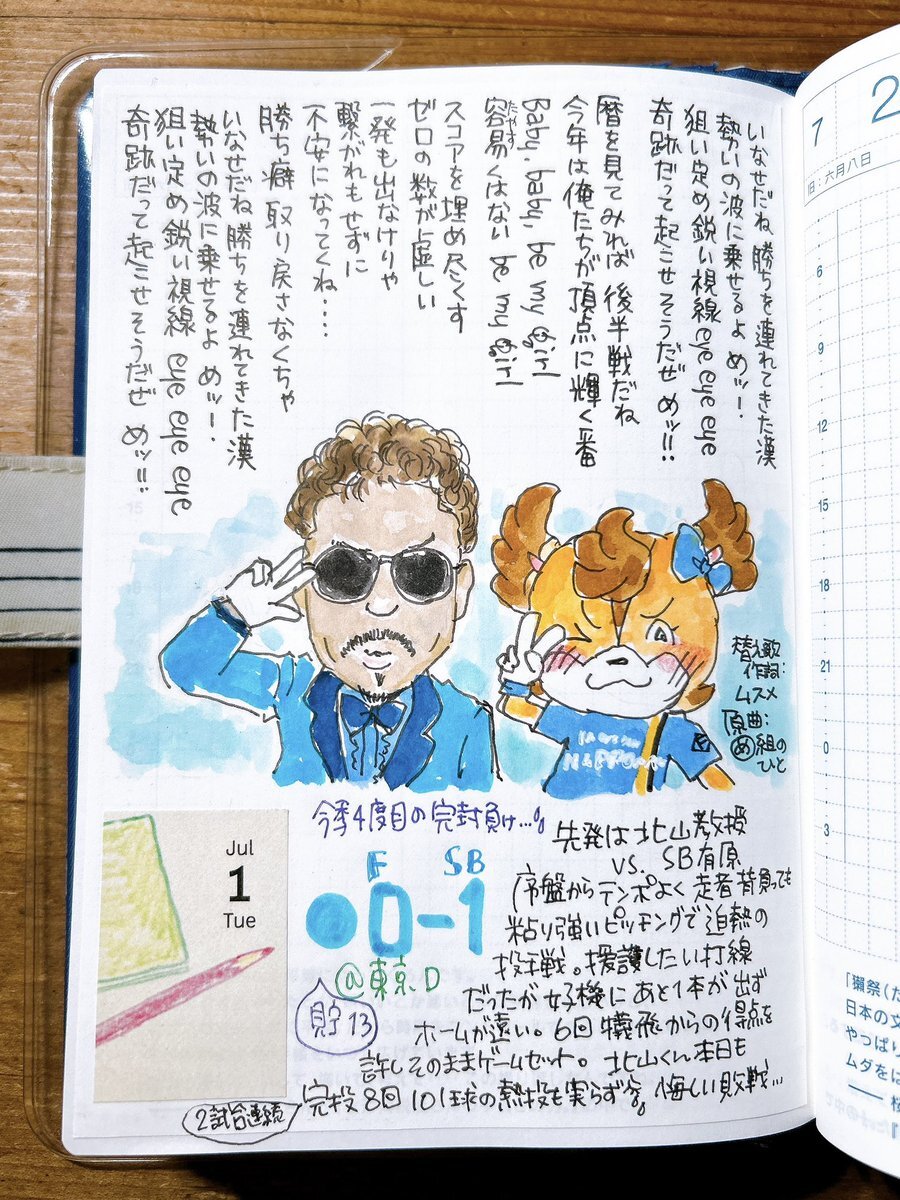 いなせだね 勝ちを連れてきた漢
勢いの波に乗せるよ めッ!
狙い定め鋭い視線 eye eye eye
奇跡だって起こせそうだぜ めッ!!
暦を見てみれば 後半戦だね
今年は俺たちが頂点に輝く番
Baby, baby, be my girl
容易くはない be my girl
たやす
スコアを埋め尽くす
ゼロの数が虚しい
一発も出なけりゃ
繋がれもせずに
不安になってくね‥‥
勝ち癖 取り戻さなくちゃ
いなせだね 勝ちを連れてきた漢
勢いの波に乗せるよ めッ!
狙い定め鋭い視線 eye eye eye
奇跡だって起こせそうだぜ めッ!!
替え歌
作詞:
ムスメ
原曲:
め組の
ひと
Jul
1
Tue
今季4度目の完封負け…
F SB
0-1
@東京D
貯13
先発は北山教授
vs. SB有原
序盤からテンポよく走者背負っても
粘り強いピッチングで迫熱の
投手戦。援護したい打線
だったが好機にあと1本が出ず
ホームが遠い。6回犠飛からの得点を
許しそのままゲームセット。北山くん本日も
完投8回101球の熱投も実らず。悔しい敗戦…
2試合連続
7
2
旧:六月八日
6
9
12
15
18
21
0
3
日本の文
やっぱり
ムダをは